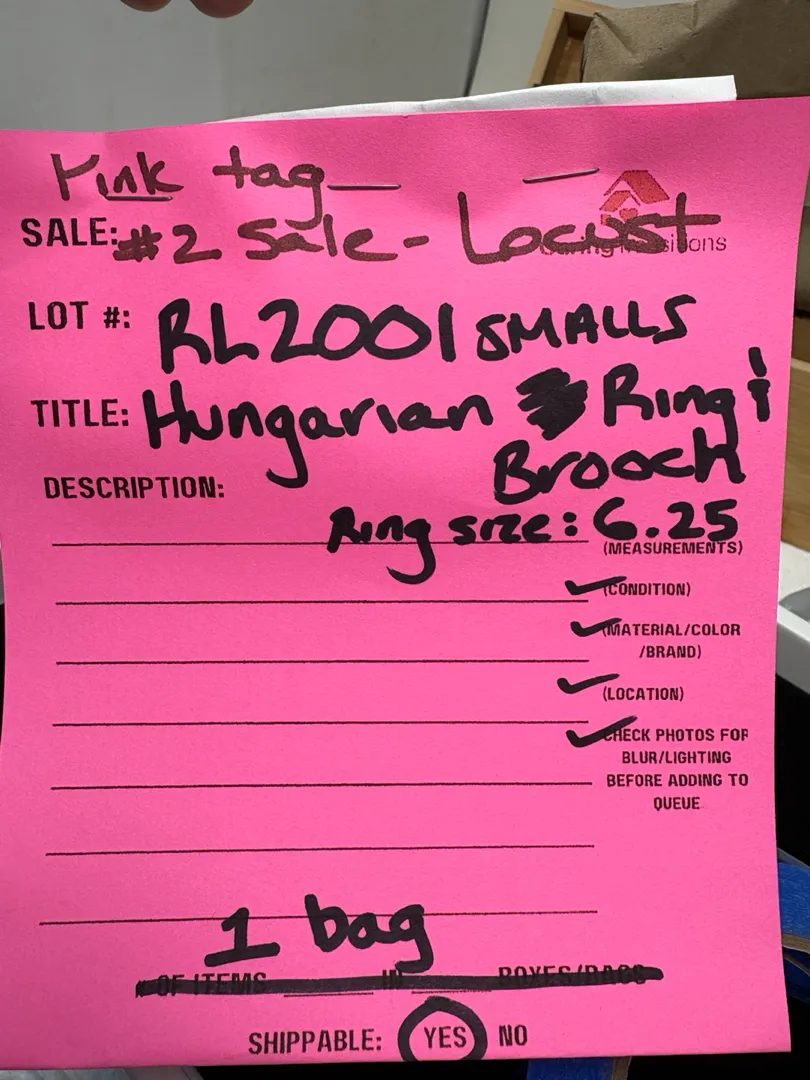 Pink tag
SALE: #2 Sale - Locust
LOT #: RL2001 SMALLS
TITLE: Hungarian Ring &
Brooch
DESCRIPTION:
Ring size: 6.25
(MEASUREMENTS)
(CONDITION)
(MATERIAL/COLOR
/BRAND)
(LOCATION)
CHECK PHOTOS FOR
BLUR/LIGHTING
BEFORE ADDING TO
QUEUE
1 bag
# OF ITEMS IN BOXES/BAGS
SHIPPABLE: YES NO